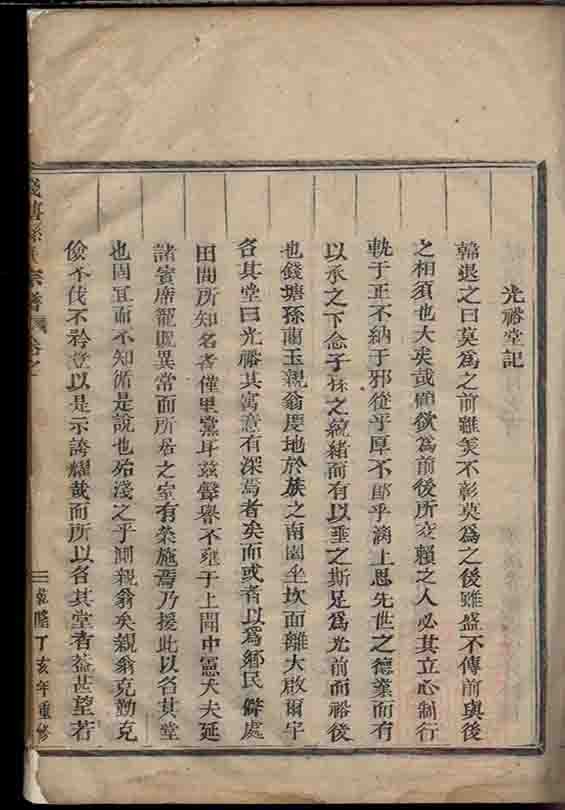 光裕堂記
韓退之曰莫為之前雖美不彰莫為之後雖盛不傳前與後
之相須也大矣哉顧欲為前後所交賴之人必其立心制行
軌于正不納于邪從乎厚不即乎漓上思先世之德業而有
以承之下念子孫之統緒而有以垂之斯足為光前而裕後
也錢塘孫蘭玉親翁慶地於族之南園坐坎面離大啟爾宇
名其堂曰光裕其寓意有深焉者矣而或者以為鄉民僻處
田間所知名者僅里黨耳茲聲譽不雍于上聞中憲大夫延
諸賓席寵匾異常而所居之室有榮施焉乃援此以名其堂
也固宜而不知循是說也殆淺之乎測親翁矣親翁克勤克
儉不伐不矜豈以是示誇耀哉而所以名其堂者葢甚望若
錢塘孫氏宗譜 卷之
乾隆丁亥年重修